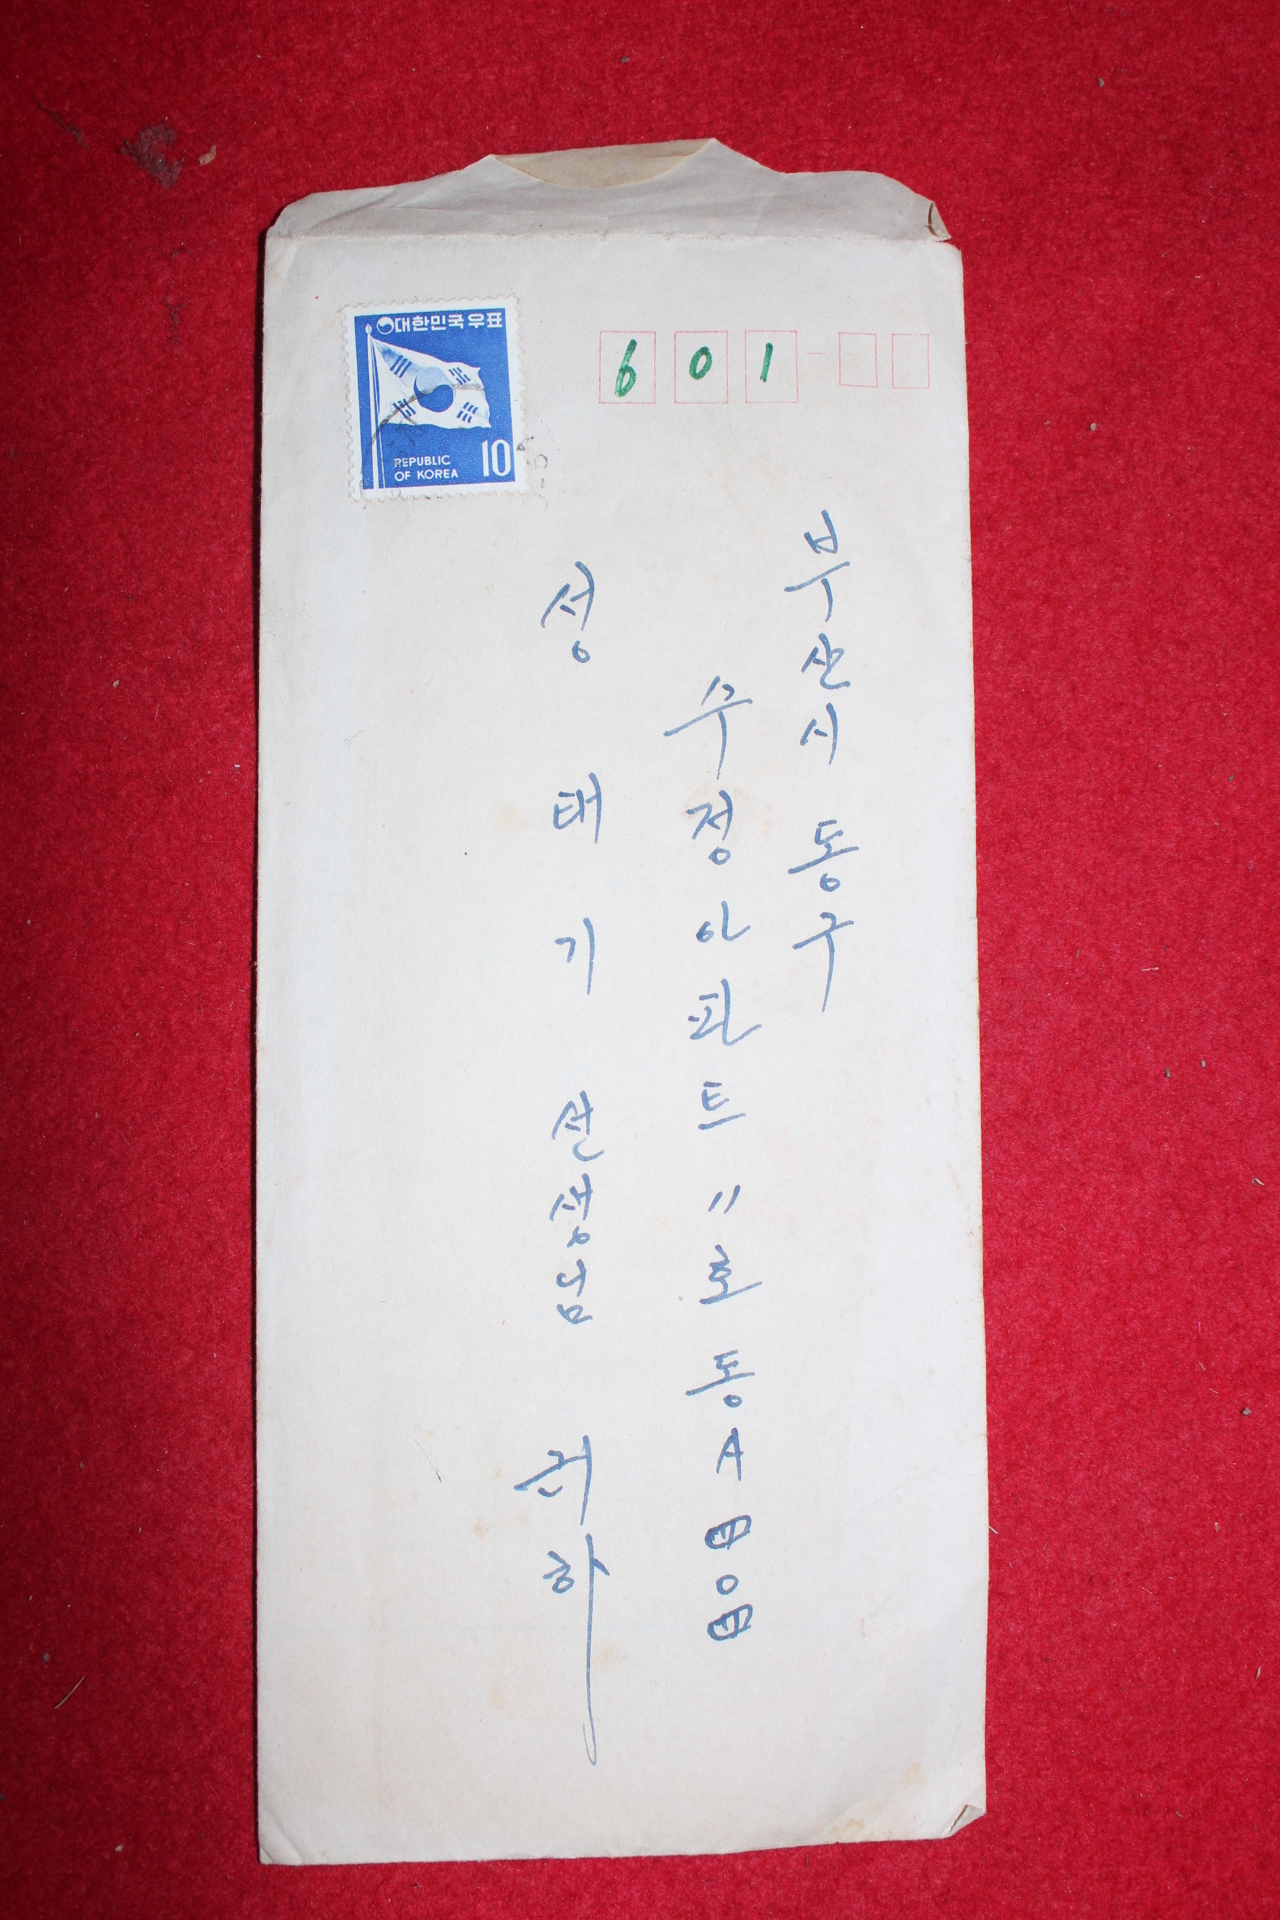 대한민국우표
REPUBLIC
OF KOREA
10
601-
부산시 동구
수정아파트 11호동 A
성태기 선생님 귀하